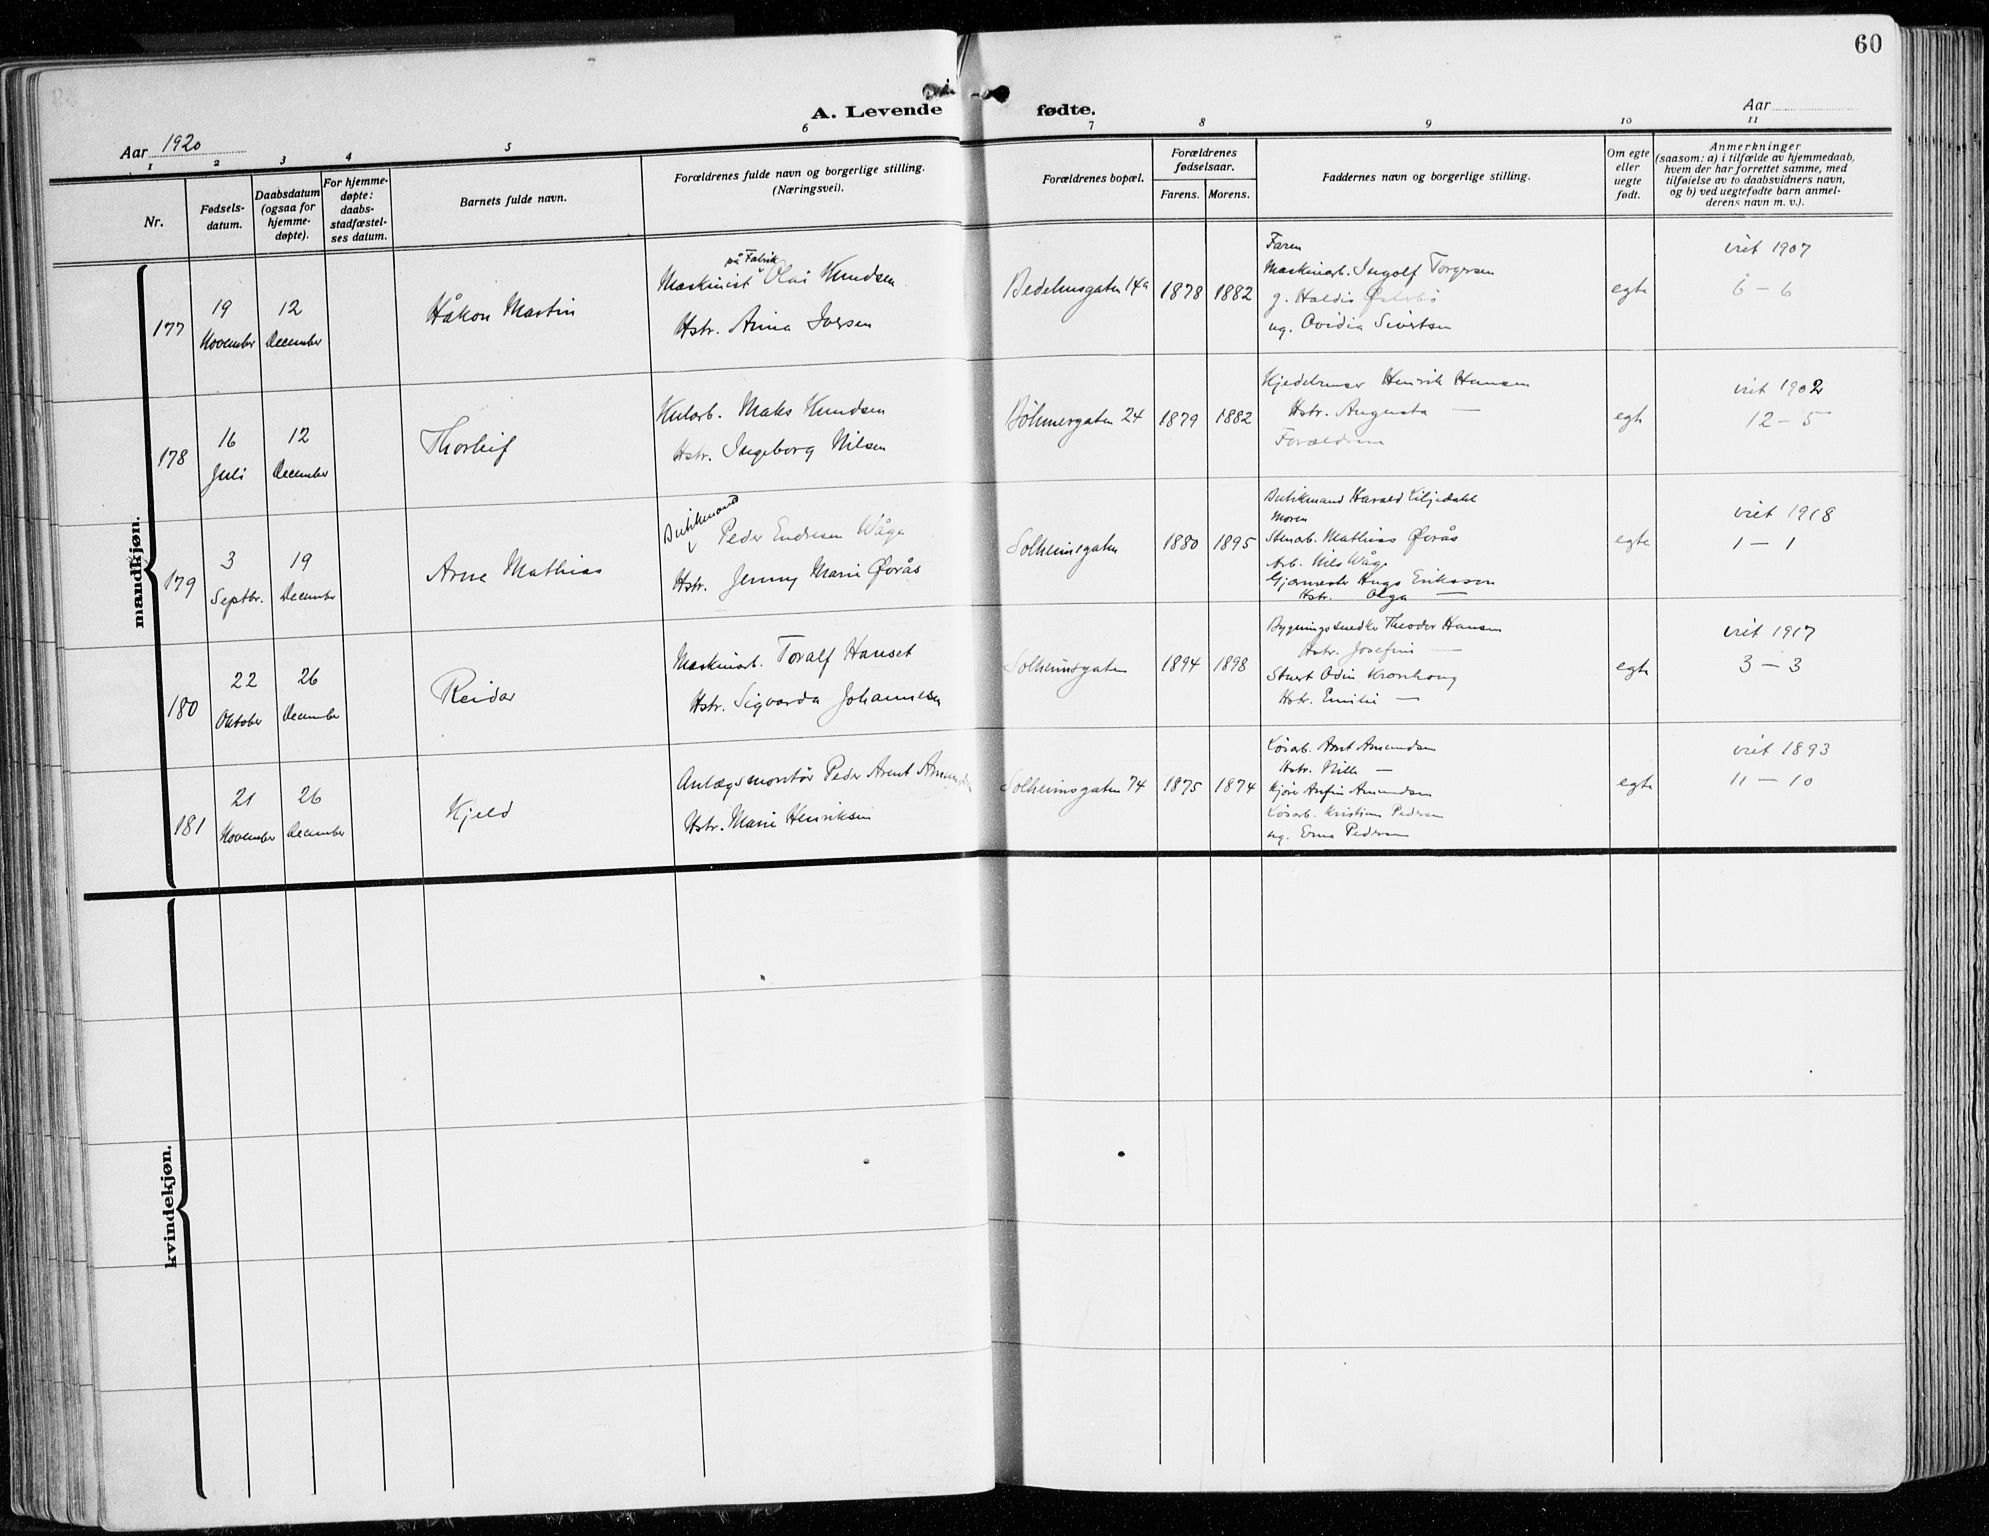 60
A. Levende fødte.
Aar 1920
Aar
1 2 3 4 5 6 7 8 9 10 11
Nr.
Fødsels-
datum.
Daabsdatum
(ogsaa for
hjemme-
døpte).
For hjemme-
døpte:
daabs-
stadfæstel-
ses datum.
Barnets fulde navn.
Forældrenes fulde navn og borgerlige stilling.
(Næringsvei).
Forældrenes bopæl.
Forældrenes
fødselsaar.
Farens. Morens.
Faddernes navn og borgerlige stilling.
Om egte
eller
uegte
født.
Anmerkninger
(saasom: a) i tilfælde av hjemmedaab,
hvem der har forrettet samme, med
tilføielse av to daabsvidners navn,
og b) ved uegtefødte barn anmel-
derens navn m. v.).
mandkjøn.
177
19
November
12
December
Håkon Martin
på Fabrik
Maskinist Olai Knudsen
Hstr. Anna Iversen
Bedehusgaten 14a
1878
1882
Faren
Maskinarb. Ingolf Torgersen
g. Haldis Østerbø
ug. Ovidia Sivertsen
egte
viet 1907
6 – 6
178
16
Juli
12
December
Thorleif
Kularb. Maks Knudsen
Hstr. Ingeborg Nilsen
Bøhmergaten 24
1879
1882
Kjedelrenser Henrik Hansen
Hstr. Augusta —
Forældrene
egte
viet 1902
12 – 5
179
3
Septbr.
19
December
Arne Mathias
Butikmand
Peder Endresen Wåge
Hstr. Jenny Marie Øvrås
Solheimsgaten
1880
1895
Butikmand Harald Liljedahl
Moren
Stenarb. Mathias Øvrås
Arb. Nils Wåge
Hugo Eriksson
Hstr. Olga —
egte
viet 1918
1 – 1
180
22
Oktober
26
December
Reidar
Maskinarb. Toralf Hanset
Hstr. Sigvarda Johannesen
Solheimsgaten
1894
1898
Bygningssnedker Theodor Hansen
Hstr. Josefine —
Stuert Odin Kronhaug
Hstr. Emilie —
egte
viet 1917
3 – 3
181
21
November
26
December
Kjeld
Anlægsmontør Peder Arent Amundsen
Hstr. Marie Henriksen
Solheimsgaten 74
1875
1874
Løsarb. Arnt Amundsen
Hstr. Nilla —
Anfin Amundsen
Løsarb. Kristian Pedersen
ug. Erna Pedersen
egte
viet 1893
11 – 10
kvindekjøn.